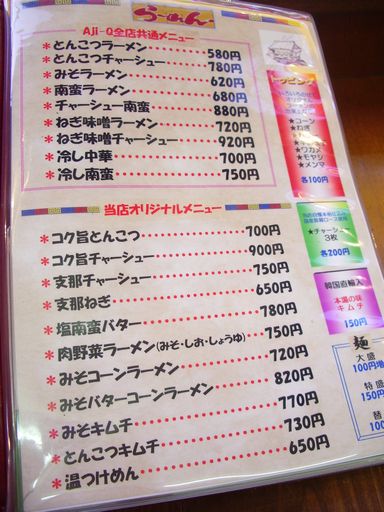 らーめん
Aji-Q全店共通メニュー
*とんこつラーメン 580円
*とんこつチャーシュー 780円
*みそラーメン 620円
*南蛮ラーメン 680円
*チャーシュー南蛮 880円
*ねぎ味噌ラーメン 720円
*ねぎ味噌チャーシュー 920円
*冷し中華 700円
*冷し南蛮 750円
当店オリジナルメニュー
*コク旨とんこつ 700円
*コク旨チャーシュー 900円
*支那チャーシュー 750円
*支那ねぎ 650円
*塩南蛮バター 780円
*肉野菜ラーメン(みそ・しお・しょうゆ) 750円
*みそコーンラーメン 720円
*みそバターコーンラーメン 820円
*みそキムチ 770円
*とんこつキムチ 730円
*温つけめん 650円
トッピング
★コーン
★ねぎ
★ワカメ
★モヤシ
★メンマ
各100円
★チャーシュー
3枚
各200円
韓国直輸入
本場の味
キムチ
150円
麺
大盛
100円増
特盛
150円
替
100